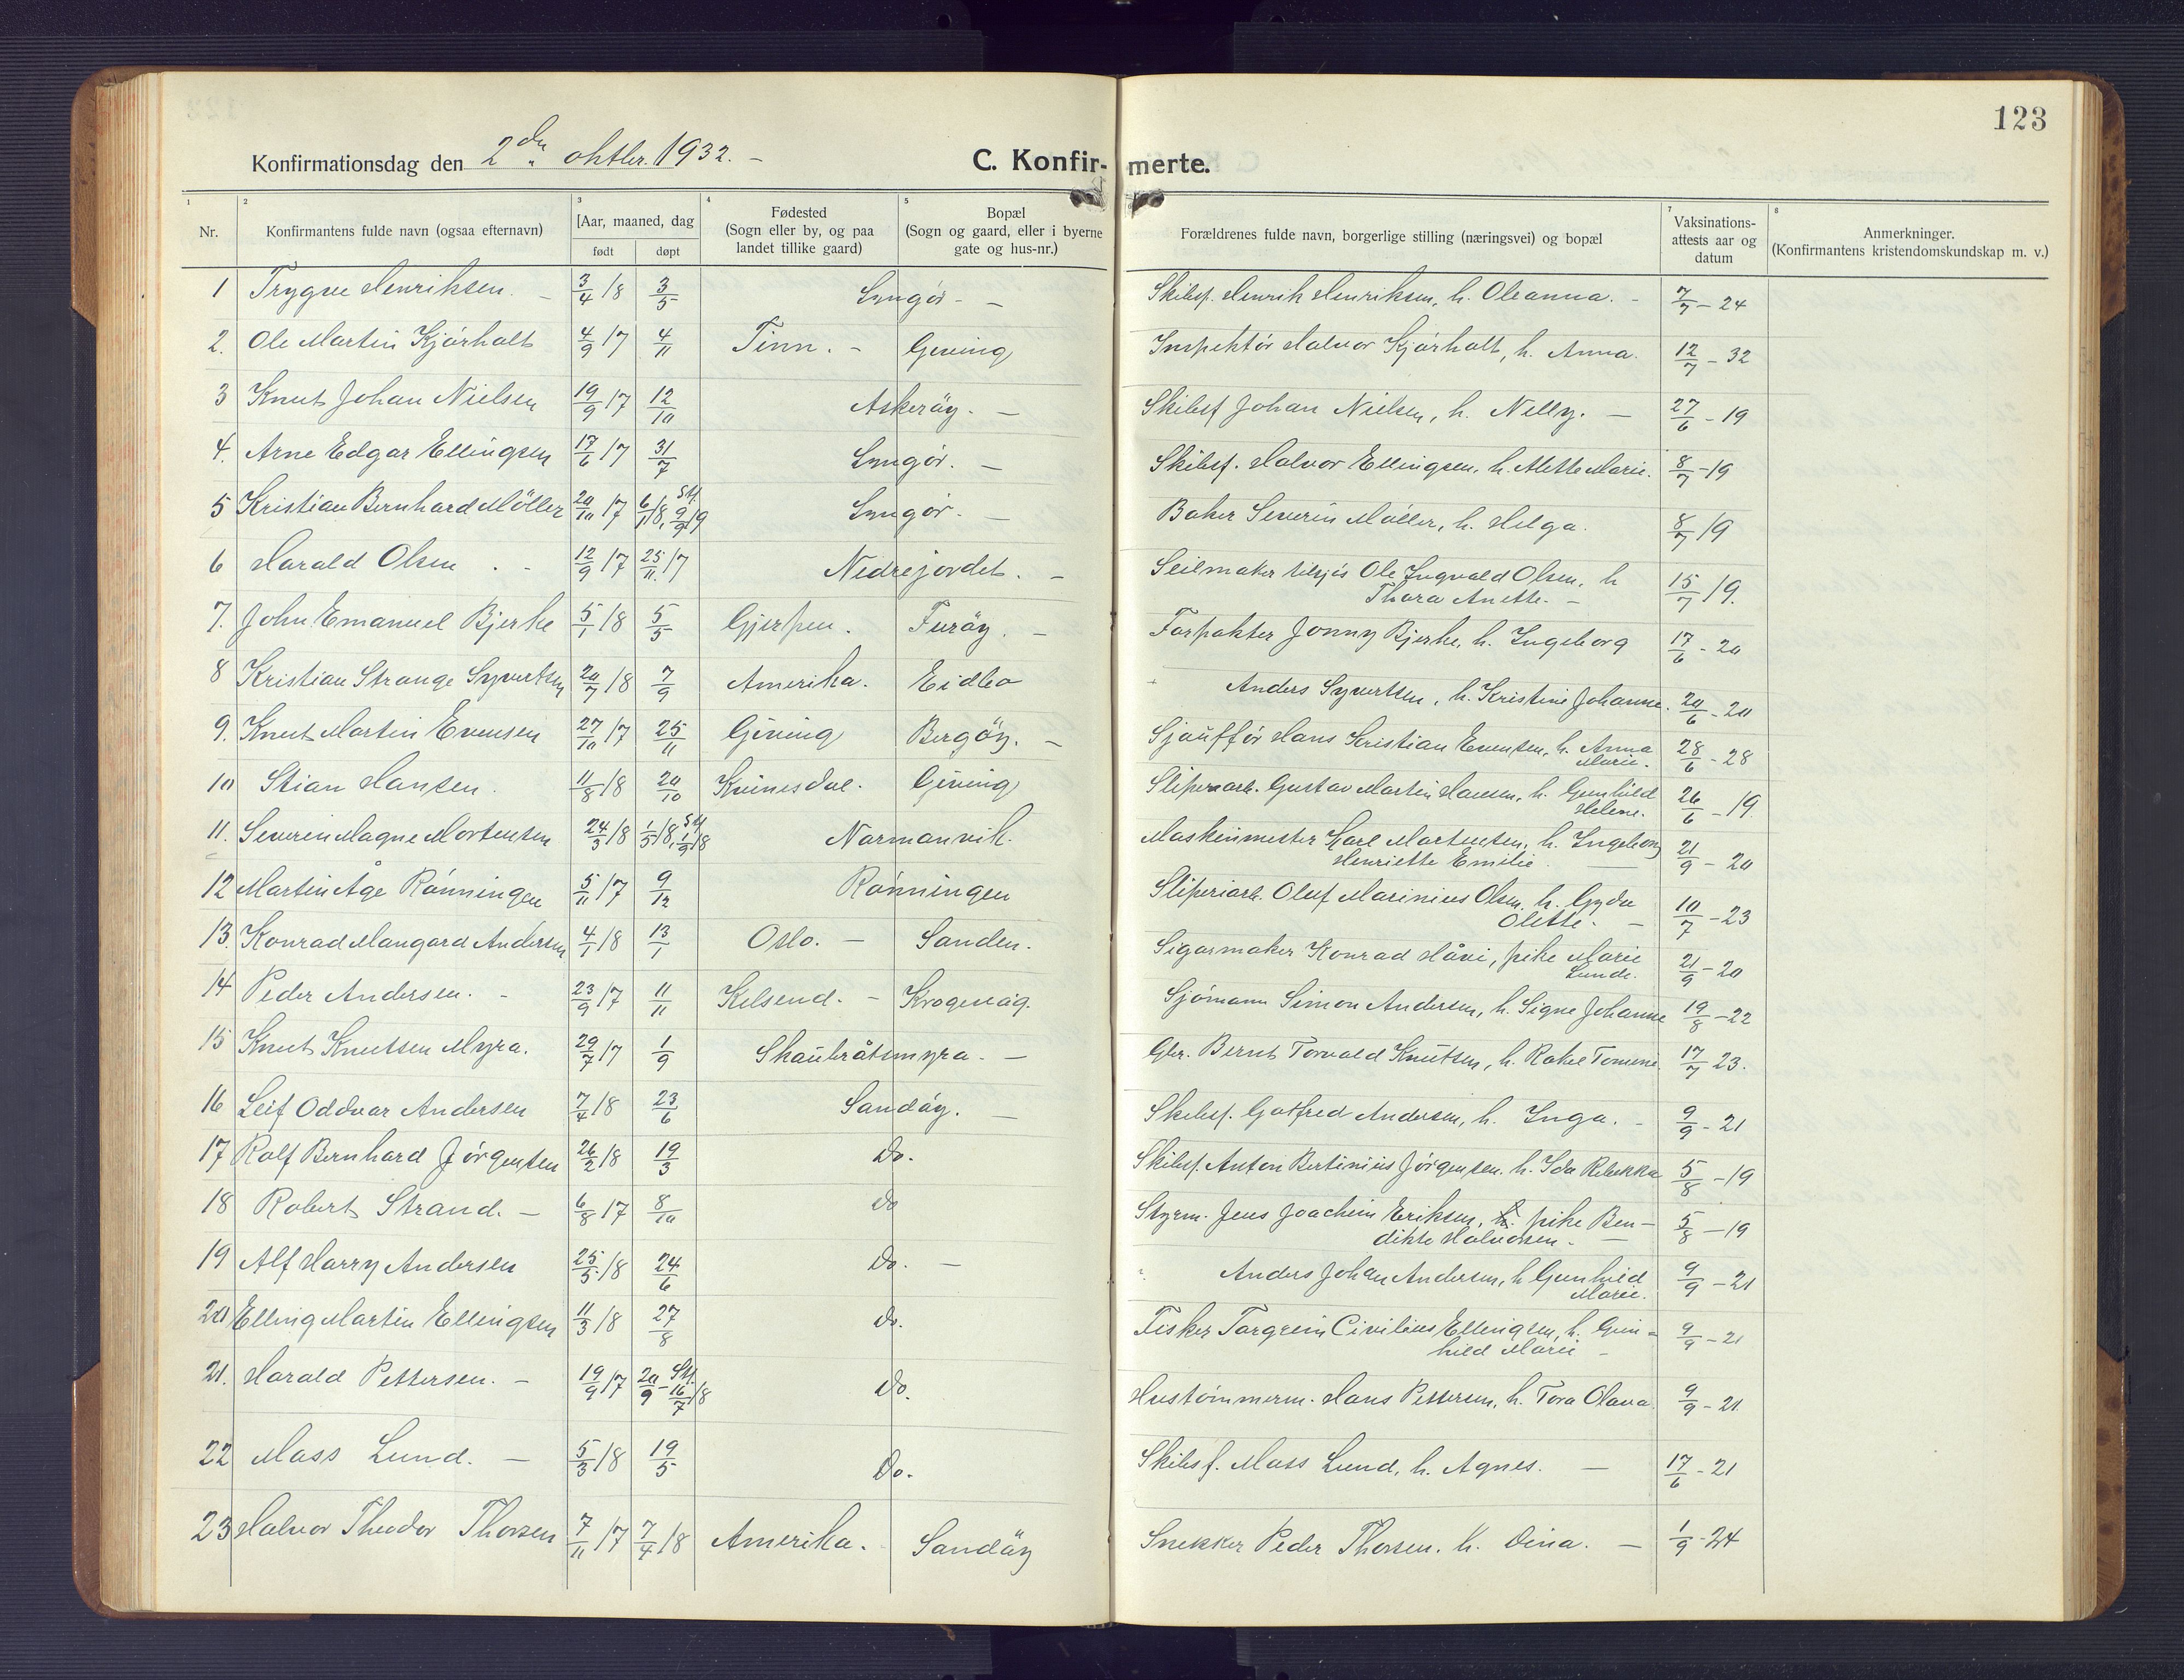 123
Konfirmationsdag den 2den oktbr. 1932. –
C. Konfir-merte.
1 2 3 4 5 7 8
Nr. Konfirmantens fulde navn (ogsaa efternavn) [Aar, maaned, dag født døpt Fødested (Sogn eller by, og paa landet tillike gaard) Bopæl (Sogn og gaard, eller i byerne gate og hus-nr.) Forældrenes fulde navn, borgerlige stilling (næringsvei) og bopæl Vaksinations-attests aar og datum Anmerkninger. (Konfirmantens kristendomskundskap m. v.)
1 Trygve Henriksen. – 3/4 18 3/5 Lyngör – – Skibsf. Henrik Henriksen, h. Oleanna. – 7/7 – 24
2. Ole Martin Kjörholt 4/9 17 4/11 Tinn. – Geving Inspektör Halvor Kjörholt, h. Anna. 12/7 – 32
3 Knut Johan Nielsen 19/9 17 12/10 Askeröy. – Skibsf Johan Nielsen, h. Nelly. – 27/6 – 19
4. Arne Edgar Ellingsen 17/6 17 31/7 Lyngör. – Skibsf. Halvor Ellingsen, h. Mette Marie. 8/7 – 19
5 Kristian Bernhard Möller 20/10 17 6/1 18, St. 9/9 19 Lyngör. – Baker Severin Möller, h. Helga. 8/7 19
6 Harald Olsen . - 12/9 17 25/11. 17 Nedrejordet. – Seilmaker tilsjös Ole Ingvald Olsen, h Thora Anette. – 15/7 19.
7. John Emanuel Bjerke 5/1 18 5/5 Gjerpen. Furöy. – Forpakter Jonny Bjerke, h. Ingeborg 17/6 - 20
8 Kristian Strange Syvertsen 20/7 18 7/9 Amerika. Eidbo Anders Syvertsen, h. Kristine Johanne. 20/6 - 20
9. Knut Martin Evensen 27/10 17 25/11 Geving Bergöy. – Sjauffór Hans Kristian Evensen, h. Anna Marie. 28/6 - 28
10 Stian Hansen. 11/8 18 20/10 Kvinesdal. Geving Sliperiarb. Gustav Martin Hansen, h. Gunhild Helene. 26/6 – 19.
11. Severin Magne Mortensen 24/3 18 1/5 18, St. 1/9 18 Narmanvik. Maskinmester Karl Martensen, h. Ingeborg Henriette Emilie 21/9 – 20
12 Martin Åge Rönningen 5/11 17 9/12 Rönningen Sliperiarb. Oluf Marinius Olsen. h. Gyda Olette. – 10/7 – 23
13. Konrad Mangard Andersen 4/1 18 13/1 Oslo. – Sanden. Sigarmaker Konrad Håvi, pike Marie Lunde. 21/9 – 20
14 Peder Andersen. - 23/9 17 11/11 Kilsund. – Krogenæs. Sjömann Simon Andersen, h. Signe Johanne 19/8 – 22
15 Knut Knutsen Myra. 29/7 17 1/9 Skaubråtsmyra. – Gbr. Bernt Torvald Knutsen, h. Rakel Tomine. 17/7 23.
16 Leif Oddvar Andersen 7/4 18 23/6 Sandöy. – Skibsf. Gotfred Andersen, h. Inga. – 9/9 - 21
17 Rolf Bernhard Jörgensen 26/2 18 19/3 Do. Skibsf. Anton Bertinius Jörgensen. h. Ida Rebekka 5/8 – 19
18 Robert Strand. – 6/8 17 8/10 Do Styrm. Jens Joachim Eriksen, h. pike Ben-dikte Halvorsen. – 5/8 – 19
19 Alf Harry Andersen 25/5 18 24/6 Do. – Anders Johan Andersen, h Gunhild Marie. 9/9 – 21
20 Elling Martin Ellingsen 11/3 18 27/8 Do. Fisker Torgrim Civilius Ellingsen, h. Gun-hild Marie – 9/9 – 21
21. Harald Pettersen. – 19/9 17 20/9 – St. 16/7 18 Do. Hustömmerm. Hans Pettersen, h. Tora Olava. 9/9 – 21
22 Mass Lund. – 5/3 18 19/5 Do. Skibsf. Mass Lund, h. Agnes. – 17/6 - 21
23 Halvor Theodor Thorsen 7/11 17 7/4 18 Amerika. Sandöy Snekker Peder Thorsen. h. Dina. – 1/9 - 24